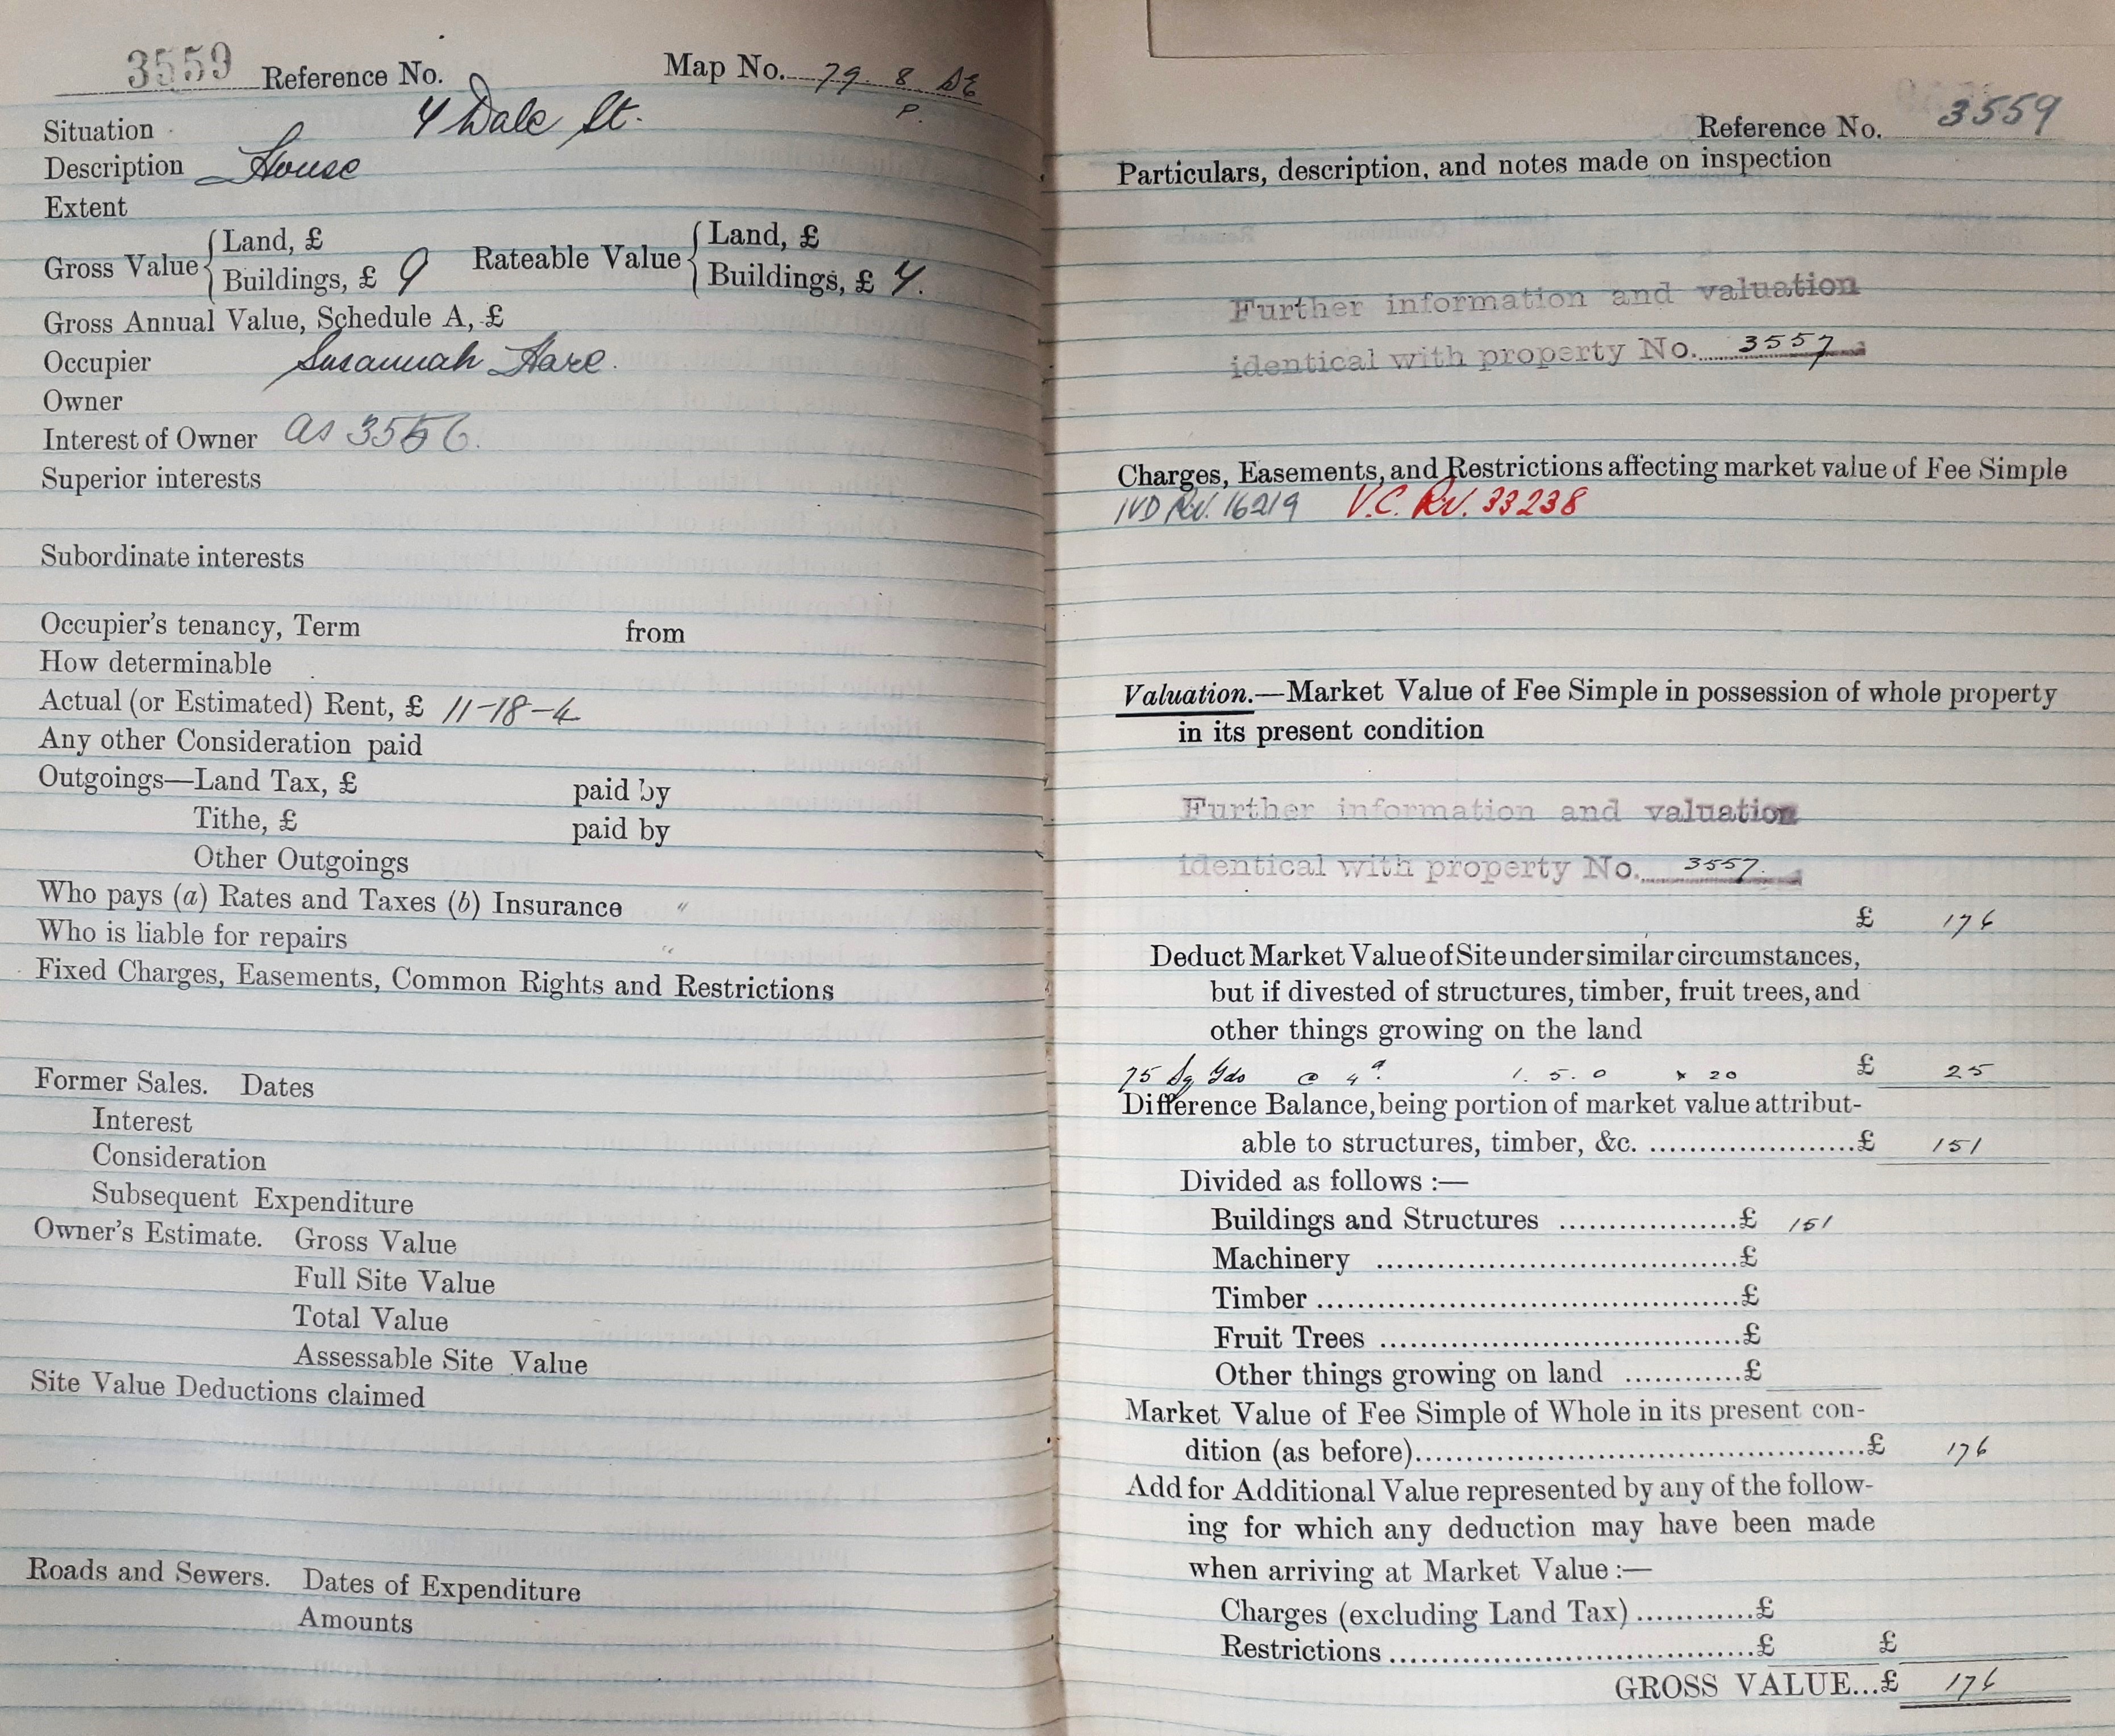 3559 Reference No. Map No. 79. 8 SE
P.
Situation 4 Dale St.
Description House
Extent
Gross Value { Land, £
Buildings, £ 9
Rateable Value { Land, £
Buildings, £ 4.
Gross Annual Value, Schedule A, £
Occupier Susannah Hare.
Owner
Interest of Owner as 3556.
Superior interests
Subordinate interests
Occupier's tenancy, Term from
How determinable
Actual (or Estimated) Rent, £ 11-18-4
Any other Consideration paid
Outgoings—Land Tax, £ paid by
Tithe, £ paid by
Other Outgoings
Who pays (a) Rates and Taxes (b) Insurance "
Who is liable for repairs "
Fixed Charges, Easements, Common Rights and Restrictions
Former Sales. Dates
Interest
Consideration
Subsequent Expenditure
Owner's Estimate. Gross Value
Full Site Value
Total Value
Assessable Site Value
Site Value Deductions claimed
Roads and Sewers. Dates of Expenditure
Amounts
Reference No. 3559
Particulars, description, and notes made on inspection
Further information and valuation
identical with property No. 3557
Charges, Easements, and Restrictions affecting market value of Fee Simple
IVD Rev. 16219 V.C. Rev. 33238
Valuation.—Market Value of Fee Simple in possession of whole property
in its present condition
Further information and valuation
identical with property No. 3557.
£ 176
Deduct Market Value of Site under similar circumstances,
but if divested of structures, timber, fruit trees, and
other things growing on the land
75 Sq Yds @ 4d. 1. 5. 0 x 20 £ 25
Difference Balance, being portion of market value attribut-
able to structures, timber, &c. ....................£ 151
Divided as follows :—
Buildings and Structures .................£ 151
Machinery ..................................£
Timber ........................................£
Fruit Trees ..................................£
Other things growing on land ...........£
Market Value of Fee Simple of Whole in its present con-
dition (as before)...............................................£ 176
Add for Additional Value represented by any of the follow-
ing for which any deduction may have been made
when arriving at Market Value :—
Charges (excluding Land Tax) ............£
Restrictions ......................................£ £
GROSS VALUE...£ 176